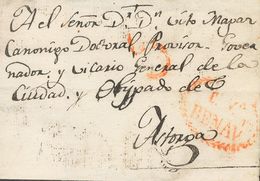 A el Señor Dr. Dn. Vito Mapar
Canonigo Doctoral Provisor. Gover
nador, y Vicario General de la
Ciudad, y Obispado de
Astorga
BENAV